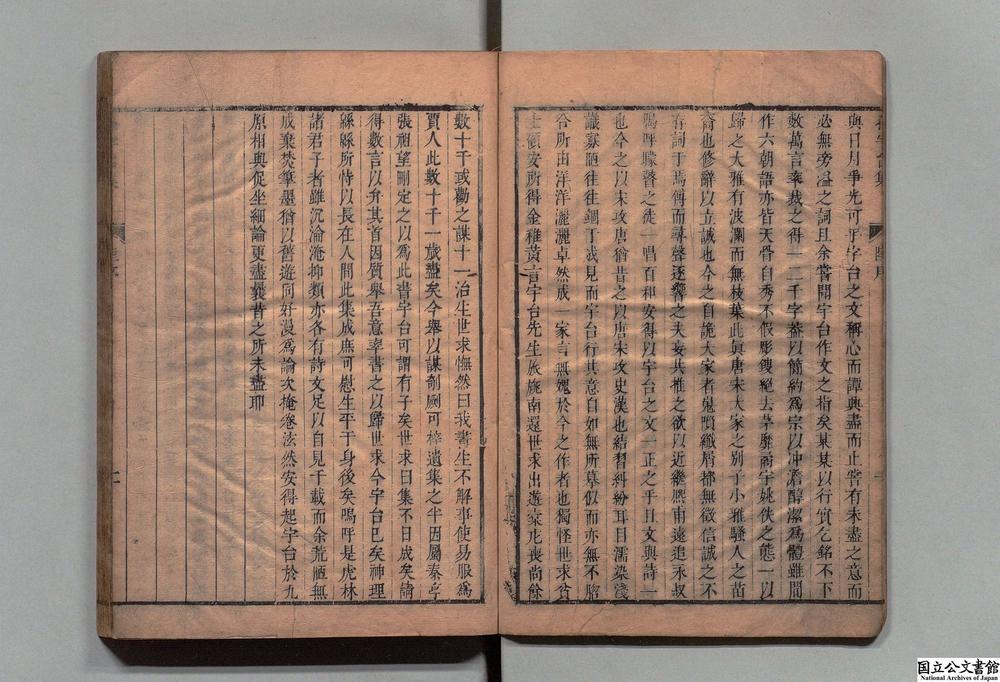 與日月爭光可乎宇台之文稱心而譚興盡而止嘗有未盡之意而
必無旁溢之詞且余嘗聞宇台作文之指矣某某以行實乞銘不下
數萬言率裁之得一二千字葢以簡約爲宗以冲澹醇潔爲體雖間
作六朝語亦皆天骨自秀不假彫鎪絕去茅靡商宇姚佚之態一以
歸之大雅有波瀾而無枝葉此眞唐宋大家之別子小雅騷人之苗
裔也修辭以立誠也今之自詭大家者鬼瑣纖屑都無徵信誠之不
存詞于焉傅而尋聲逐響之夫妄共推之欲以近繼熙甫遠追永叔
嗚呼矇瞽之徒一唱百和安得以宇台之文一正之乎且文與詩一
也今之以宋攻唐猶昔之以唐宋攻史漢也結習糾紛耳目濡染淺
識寡陋往往錮于我見而宇台行其意自如無所摹似而亦無不脗
合所由洋洋灑灑卓然成一家言無媿於今之作者也獨怪世求貧
士顧安所得金稚黃言宇台先生旅旐南還世求出遊豪尨喪尚餘
數十千或勸之謀十一治生世求憮然曰我書生不解事使易服爲
賈人此數十千一歲盡矣今舉以謀剞劂可梓遺集之半因屬秦亭
張祖望刪定之以爲此書宇台可謂有子矣世求曰集不日成矣請
得數言以弁其首因質舉吾意率書之以歸世求今宇台已矣神理
緜緜所恃以長在人間此集成庶可慰生平于身後矣嗚呼是虎林
諸君子者雖沉淪淹抑類亦各有詩文足以自見千載而余荒陋無
成棄焚筆墨猶以舊遊同好漫爲論次掩卷泫然安得起宇台於九
原相與促坐細論更盡曩昔之所未盡耶
国立公文書館
National Archives of Japan